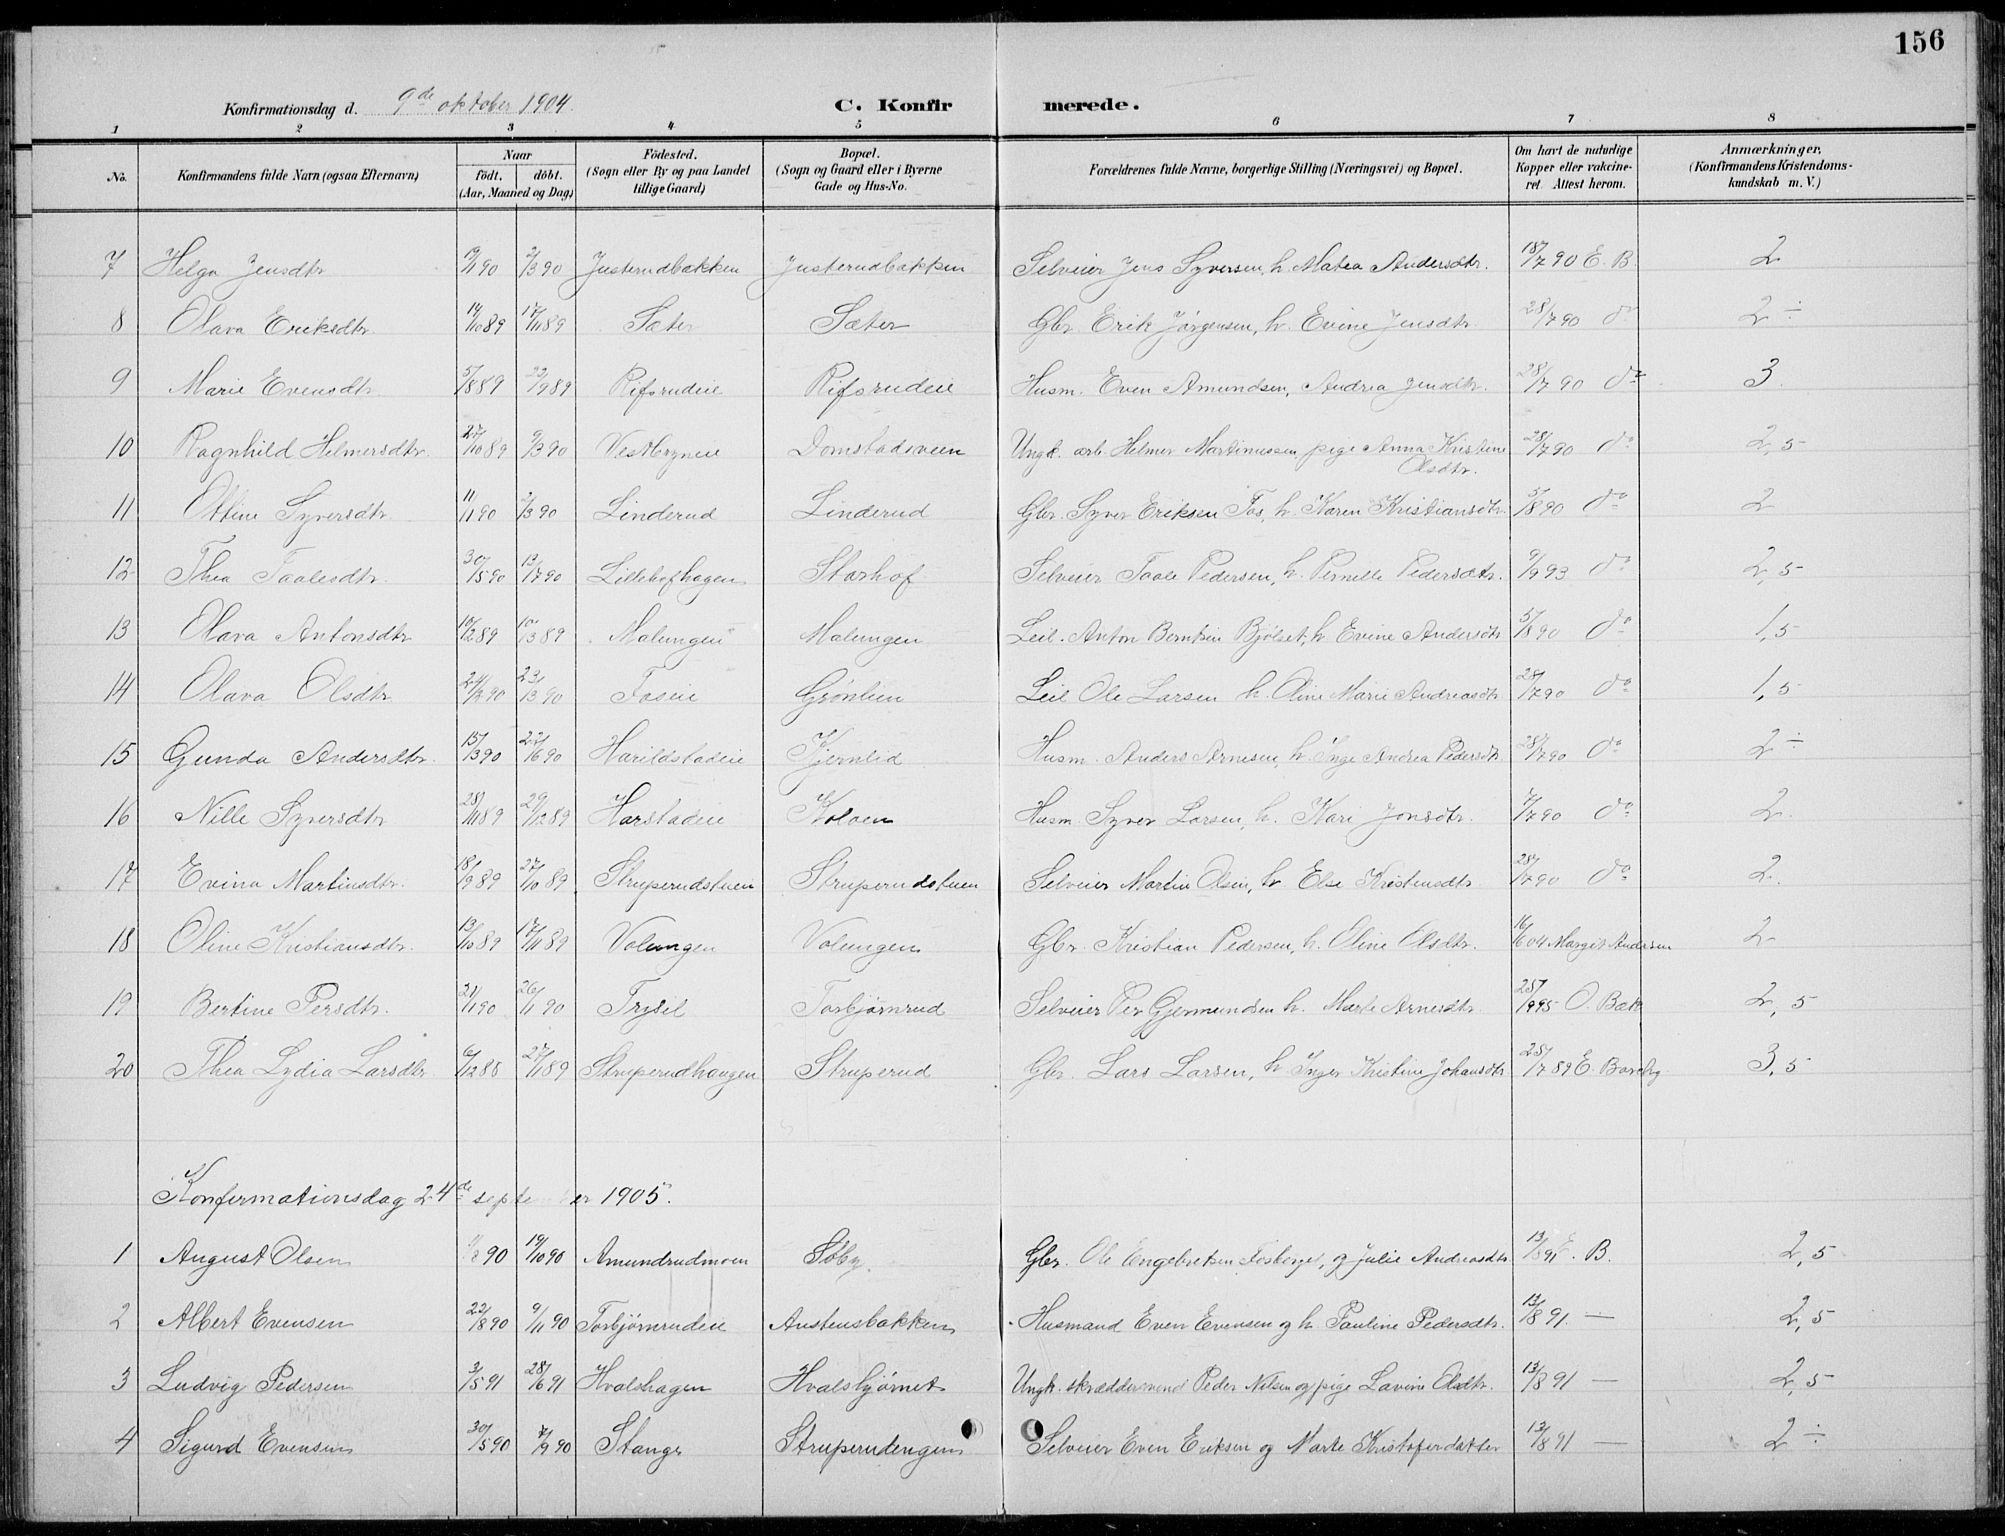 156
Konfirmationsdag d. 9de oktober 1904.
C. Konfirmerede.
1 2 3 4 5 6 7 8
No. Konfirmandens fulde Navn (ogsaa Efternavn) Naar født. døbt. (Aar, Maaned og Dag) Fødested. (Sogn eller By og paa Landet tillige Gaard) Bopæl. (Sogn og Gaard eller i Byerne Gade og Hus-No. Forældrenes fulde Navne, borgerlige Stilling (Næringsvei) og Bopæl. Om havt de naturlige Kopper eller vakcineret. Attest herom. Anmærkninger, (Konfirmandens Kristendomskundskab m. V.)
7 Helga Jensdtr. 9/1 90 2/3 90 Justerudbakken Justerudbakken Selveier Jens Syversen, h. Matea Andersdtr. 18/7 90 E. B. 2
8 Olava Eriksdtr. 14/10 89 17/11 89 Sæter Sæter Gbr. Erik Jørgensen, h. Evine Jensdtr. 28/7 90 do 2 ÷
9 Marie Evensdtr. 5/8 89 22/9 89 Rifsrudeie Rifsrudeie Husm. Even Amundsen, Andrea Jensdtr. 28/7 90 do 3
10 Ragnhild Helmersdtr. 27/10 89 9/3 90 Domstadsveen Ungk. arb. Helmer Martinussen, pige Anna Kristine Olsdtr. 28/7 90 do 2,5
11 Ottine Syversdtr. 11/1 90 2/3 90 Linderud Linderud Gbr. Syver Eriksen Fos, h. Karen Kristiansdtr. 5/8 90 do 2
12 Thea Taalesdtr. 30/5 90 13/7 90 Lillehofhagen Storhof Selveier Taale Pedersen, h. Pernille Pedersdtr. 9/9 93 do 2,5
13 Olava Antonsdtr. 10/2 89 10/3 89 Malungen Malungen Leil. Anton Berntsen Bjølset, h. Evine Andersdtr. 5/8 90 do 1,5
14 Olava Olsdtr. 24/2 90 23/3 90 Foseie Grønlien Leil Ole Larsen h. Oline Marie Andreasdtr 28/7 90 do 1,5
15 Gunda Andersdtr. 15/3 90 22/6 90 Harildstadeie Kjernlid Husm. Anders Arnesen, h. Inge Andrea Pedersdtr. 28/7 90 do 2 ÷
16 Nille Syversdtr. 28/11 89 29/12 89 Harstadeie Koloen Husm. Syver Larsen, h. Kari Jonsdtr. 7/7 90 do 2.
17 Evina Martinsdtr. 18/9 89 27/10 89 Struperudstuen Struperudstuen Selveier Martin Olsen, h. Else Kristensdtr. 28/7 90 do 2.
18 Oline Kristiansdtr. 13/10 89 17/11 89 Volungen Volungen Gbr. Kristian Pedersen, h. Oline Olsdtr. 16/6 04 Margit Andersen 2
19 Bertine Persdtr. 21/1 90 26/1 90 Trysil Torbjørnrud Selveier Per Gjermundsen h. Marte Arnesdtr. 25/9 95 O. Bak 2,5
20 Thea Lydia Larsdtr. 6/12 88 27/1 89 Struperudhaugen Struperud Gbr. Lars Larsen, h. Inger Kristine Johansdtr 25/7 89 E. 3,5
Konfirmationsdag 24de september 1905.
1 August Olsen 90 19/10 90 Amundrudmoen Søby. Gbr. Ole Engebretsen Fosberget, og Julie Andreasdtr 13/8 91 E. B. 2,5
2 Albert Evensen 22/8 90 9/11 90 Torbjørnrudeie Austensbakken Husmand Even Evensen og h. Pauline Pedersdtr. 13/8 91. — 2,5
3 Ludvig Pedersen 3/5 91 28/6 91 Hvalshagen Hvalshjørnet Ungk. skræddersvend Peder Nilsen og pige Lavine Olsdtr. 13/8 91 — 2,5
4 Sigurd Evensen 30/5 90 7/9 90 Stange Struperudengen Selveier Even Eriksen og Marte Kristoferdatter 13/8 91 — 2 ÷